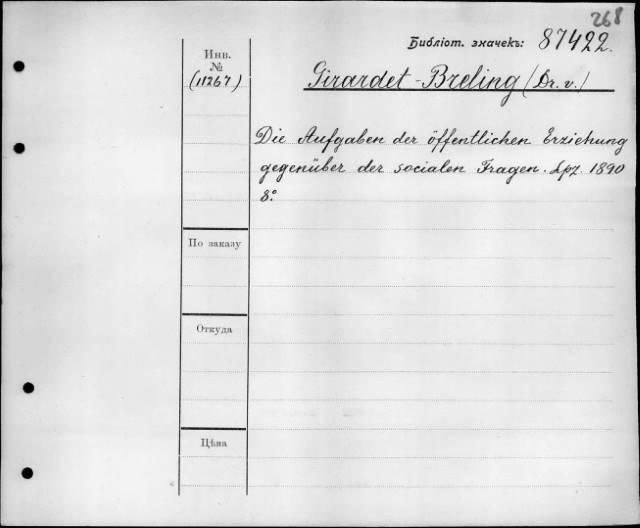 268
Библіот. значекъ: 87422.
Инв.
№
(11267)
Girardet-Breling (Dr. v.)
Die Aufgaben der öffentlichen Erziehung
gegenüber der socialen Fragen. Lpz. 1890
8.º
По заказу
Откуда
Цѣна